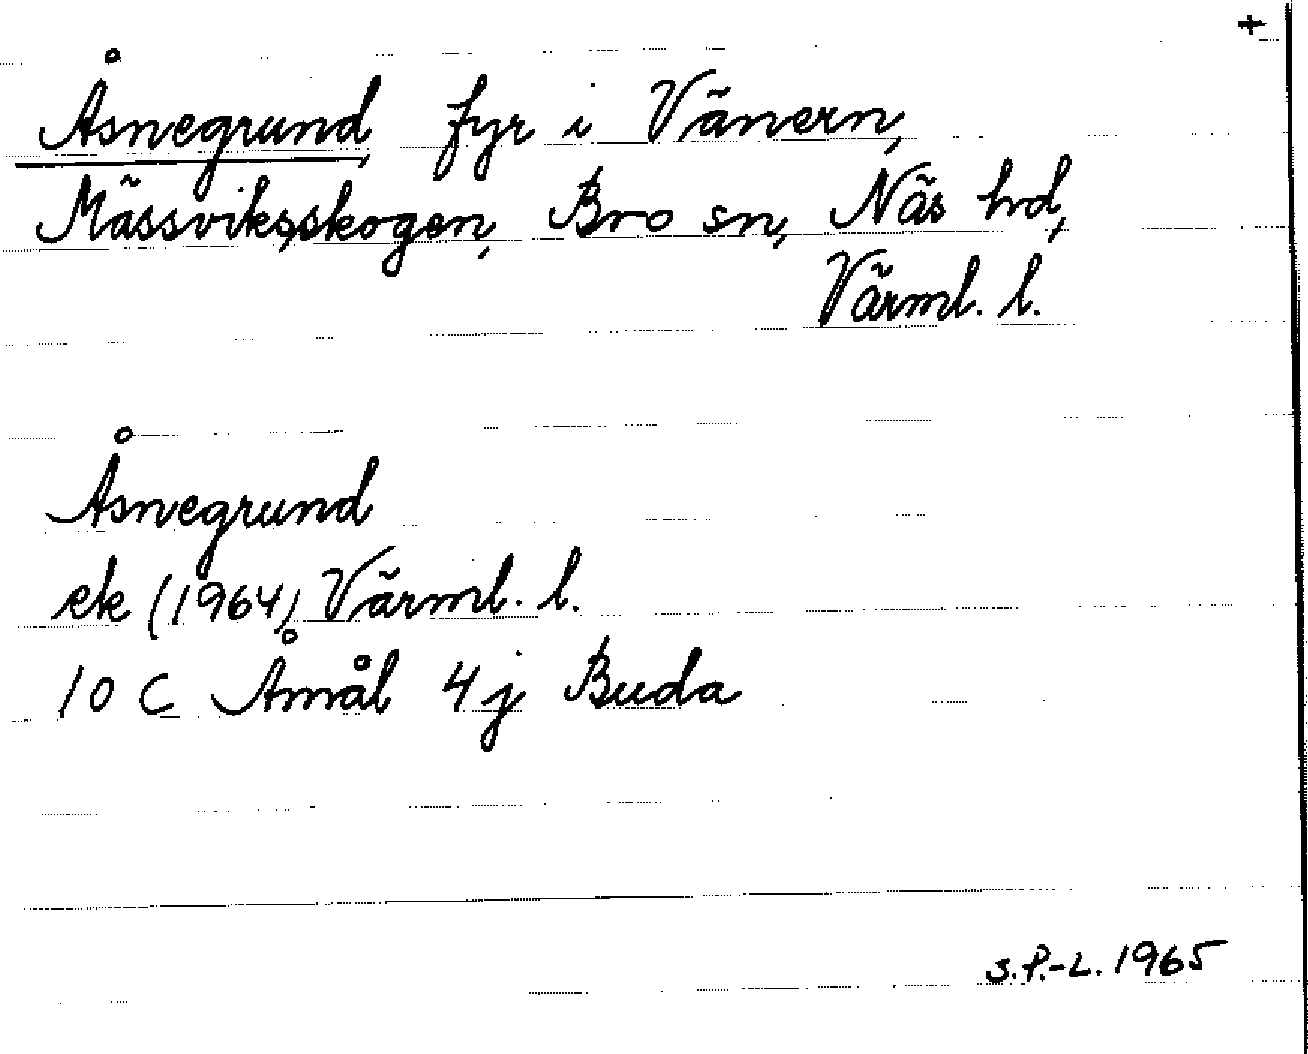 +
Åsnegrund, fyr i Vänern,
Mässviksskogen, Bro sn, Näs hd,
Värml. l.
Åsnegrund
ek (1964) Värml. l.
10 C Åmål 4 j Buda
S.P.-L. 1965